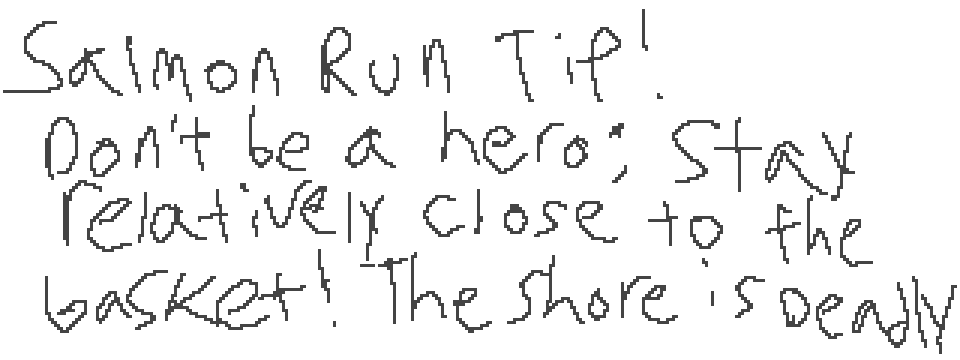 Salmon Run Tip!
Don't be a hero; Stay
relatively close to the
basket! The shore is Deadly